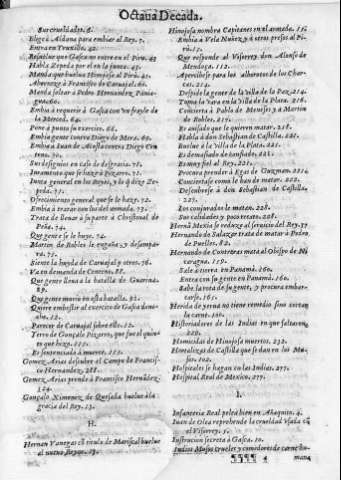 Octaua Decada.
Sus crueldades. 6.
Eligeà Aldana para embiar al Rey. 7.
Entra en Truxillo. 42.
Resuelue que Gasca no entre en el Pirù. 42
Habla Zepeda por el en la junta. 43.
Manda que buelua Hinojosa al Pirù. 43.
Aborrezele à Francisco de Caruajal. 60.
Manda soltar à Pedro Hernandez Paniagua. 60.
Embia à requerir à Gasca con vn frayle de la Merced. 64.
Pone à punto su exercito. 66.
Embia gente contra Diego de Mora. 69.
Embia à Iuan de Acosta contra Diego Centeno. 70.
Sus designios en caso de desgracia. 71.
Iuramento que se haze à Pizarro. 71.
Iunta general en los Reyes, y lo que dize Zepeda. 71.
Ofrecimiento general que se le haze. 72.
Embia à tratar con los del armada. 73.
Trata de llenar à su parte à Christoual de Peña. 74.
Que gente se le huye. 74.
Martin de Robles le engaña, y desampara. 75.
Siente la huyda de Caruajal y otros. 76.
Va en demanda de Centeno. 88.
Que gente lleua à la batalla de Guarina. 89.
Que gente muriò en esta batalla. 92.
Quiere embestir al exercito de Gasca denoche. 12.
Parecer de Caruajal sobre ello. 12.
Yerro de Gonçalo Pizarro, que fue el quinto que hizo. 111.
Es sentenciado à muerte. 113.
Gomez Arias descubre el Campo de Francisco Hernandez. 288.
Gomez Arias prende à Francisco Hernãdez. 324.
Gonçalo Ximenez de Quesada buelue à la gracia del Rey. 13.
H.
Hernan Vanegas cõ titulo de Mariscal buelue al nueuo Reyno. 13.
Hinojosa nombra Capitanes en el armada. 16
Embia à Vela Nuñez, y à otros presos al Pirù. 17.
Que responde al Visorrey don Alonso de Mendoça. 112.
Apercibese para los alborotos de los Charcas. 214.
Despide la gente de la villa de la Paz. 214.
Toma la vara en la villa de la Plata. 216.
Concierta à Pablo de Meneses y à Martin de Robles. 217.
Es auisado que le quieren matar. 218.
Habla à don Sebastian de Castilla. 221.
Buelue à la villa de la Plata. 221.
Es demasiado de confiado. 221.
Es muy fiel al Rey. 221.
Procura prender à Egas de Guzman. 224
Conciertase como le han de matar. 222.
Descubrese à don Sebastian de Castilla. 227.
Los conjurados le matan. 228.
Sus calidades y poco recato. 228.
Hernã Mexia se reduze al seruicio del Rey. 37
Hernando de Salazar trata de matar à Pedro de Puelles. 82.
Hernando de Contreras mata al Obispo de Nicaragua. 159.
Sale à tierra en Panamà. 160.
Entra con su gente en Panamà. 160.
Sabe la rota de su gente, y procura embarcarse. 161.
Herida de yerua no tiene remedio sino cortan la carne. 110.
Historiadores de las Indias en que faltaron. 220.
Homicidas de Hinojosa muertos. 232.
Hortalizas de Castilla que se dan en los Mosos. 102.
Hospitales se hagan en las Indias. 277.
Hospital Real de Mexico. 277.
I.
Infanteria Real pelea bien en Añaquito. 4.
Iuan de Olea reprehende la crueldad vsada cõ el Visorrey. 5.
Instruccion secreta à Gasca. 10.
Indios Musos crueles y comedores de carne humana
¶¶¶¶ 4